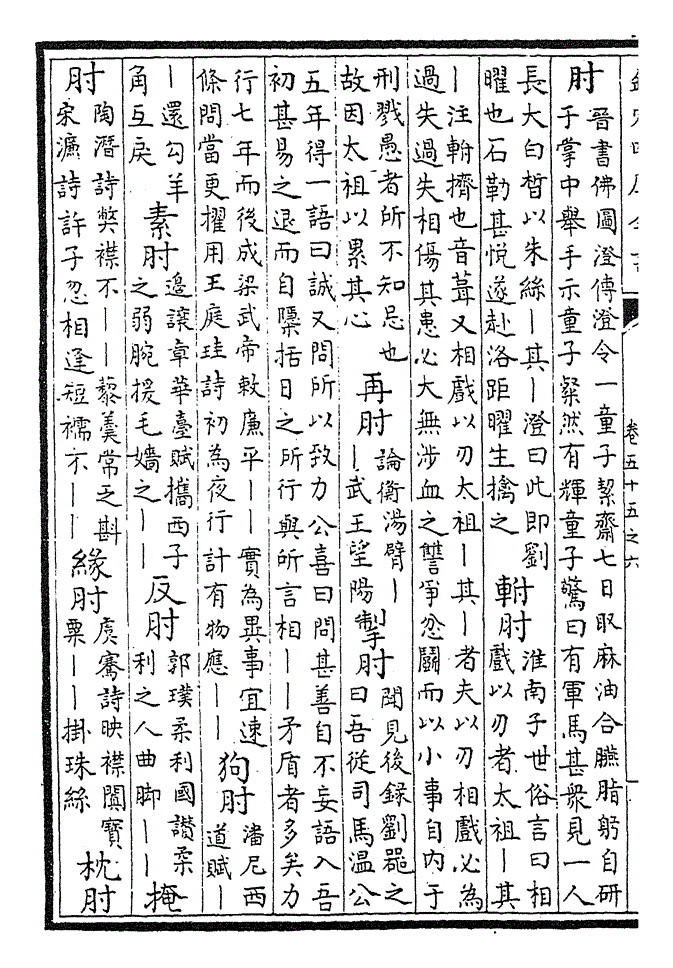 肘 晉書佛圖澄傳澄令一童子絜齋七日取麻油合臙脂躬自研
于掌中舉手示童子粲然有輝童子驚曰有軍馬甚衆見一人
長大白皙以朱絲｜其｜澄曰此即劉
曜也石勒甚悦遂赴洛距曜生擒之
軵肘 淮南子世俗言曰相
戲以刃者太祖｜其
｜注軵擠也音葺又相戲以刃太祖｜其｜者夫以刃相戲必為
過失過失相傷其患必大無涉血之讐爭忿鬬而以小事自内于
刑戮愚者所不知忌也
故因太祖以累其心
再肘 論衡湯臂｜
｜武王望陽
掣肘 聞見後録劉器之
曰吾從司馬温公
五年得一語曰誠又問所以致力公喜曰問甚善自不妄語入吾
初甚易之退而自櫽括日之所行與所言相｜｜矛盾者多矣力
行七年而後成梁武帝敕廉平｜｜實為異事宜速
條問當更擢用王庭珪詩初為夜行計有物應｜｜
狗肘 潘尼西
道賦｜
｜還勾羊
角互戾
素肘 邊讓章華臺賦攜西子
之弱腕援毛嬙之｜｜
反肘 郭璞柔利國讃柔
利之人曲脚｜｜
掩
肘 陶潛詩弊襟不｜｜藜羮常乏斟
宋濂詩許子忽相逢短襦不｜｜
緣肘 虞騫詩映襟闐寶
粟｜｜掛珠絲
枕肘
卷五十五之六